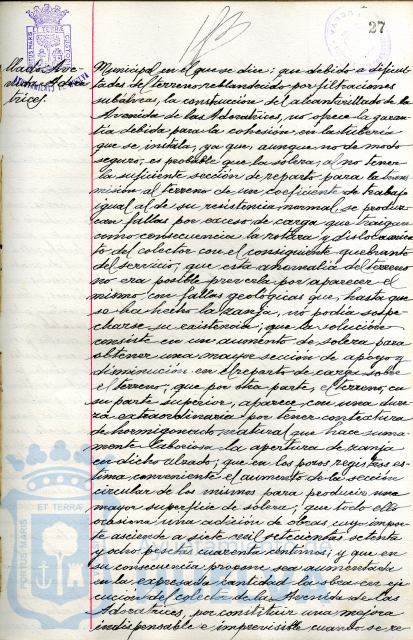 27
llado Ave-
nida Adora-
trices.
Municipal en el que se dice: que debido a dificul-
tades del terreno, reblandecido por filtraciones
subálveas, la construcción del alcantarillado de la
Avenida de las Adoratrices, no ofrece la garan-
tía debida para la cohesión en la tubería
que se instala, ya que, aunque no de modo
seguro, es probable que la solera, al no tener
la suficiente sección de reparto para la trans-
misión al terreno de un coeficiente de trabajo
igual al de su resistencia normal, se produz-
can fallas por exceso de carga que traigan
como consecuencia la rotura y dislocamien-
to del colector con el consiguiente quebranto
del servicio; que esta anomalía del terreno
no era posible preverla por aparecer el
mismo con fallas geológicas que, hasta que
se ha hecho la zanja, no podía sospe-
charse su existencia; que la solución
consiste en un aumento de solera para
obtener una mayor sección de apoyo y
disminución en el reparto de carga sobre
el terreno; que por otra parte, el terreno, en
su parte superior, aparece con una dure-
za extraordinaria por tener contextura
de hormigonado natural que hace suma-
mente laboriosa la apertura de zanja
en dicho alzado; que en los pozos registros es-
tima conveniente el aumento de la sección
circular de los mismos para producir una
mayor superficie de solera; que todo ello
ocasiona una adición de obras cuyo impor-
te asciende a mil setecientas setenta
y ocho pesetas cuarenta céntimos; y que en
su consecuencia propone sea aumentada
en la expresada cantidad la obra en eje-
cución del colector de la Avenida de las
Adoratrices, por constituir una mejora
indispensable e imprevisible cuando se re
PORTUS MARIS
ET TERRAE
Ayuntamiento de